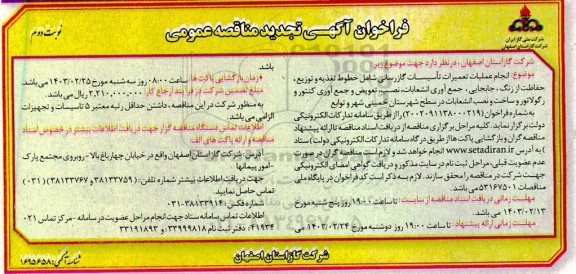 فراخوان آگهی تجدید مناقصه عمومی
نوبت دوم
شرکت ملی گاز ایران
شرکت گاز استان اصفهان
شرکت گاز استان اصفهان، در نظر دارد جهت موضوع زیر:
موضوع: انجام عملیات تعمیرات تأسیسات گازرسانی شامل خطوط تغذیه و توزیع،
حفاظت از زنگ، جابجایی، جمع آوری انشعابات، نصب، تعویض و جمع آوری کنتور و
رگولاتور و ساخت و نصب انشعابات در سطح شهرستان خمینی شهر و توابع
به شماره فراخوان (2002091138000219) را از طریق سامانه تدارکات الکترونیکی
دولت برگزار نماید. کلیه مراحل برگزاری مناقصه از دریافت اسناد مناقصه تا ارائه پیشنهاد
مناقصه گران و بازگشایی پاکت ها از طریق درگاه سامانه تدارکات الکترونیکی دولت( ستاد
) به آدرس www.setadiran.ir انجام خواهد شد و لازم است مناقصه گران در صورت
عدم عضویت قبلی، مراحل ثبت نام در سایت مذکور و دریافت گواهی امضای الکترونیکی
جهت شرکت در مناقصه را محقق سازند. لازم به ذکر است کد فراخوان در پایگاه ملی
مناقصات 5316750 می باشد.
مهلت زمانی دریافت اسناد مناقصه از سایت: تا ساعت 19:00 روز پنج شنبه مورخ
1403/02/13 می باشد.
مهلت زمانی ارائه پیشنهاد: تا ساعت 19:00 روز دوشنبه مورخ 1403/02/24 می
باشد.
زمان بازگشایی پاکت ها: ساعت 08:00 روز سه شنبه مورخ 1403/02/25 می باشد.
مبلغ تضمین شرکت در فرآیند ارجاع کار: 3,210,000,000 ریال می باشد.
به منظور شرکت در این مناقصه، داشتن حداقل رتبه معتبر 5 تاسیسات و تجهیزات
الزامی می باشد.
اطلاعات تماس دستگاه مناقصه گزار جهت دریافت اطلاعات بیشتر در خصوص اسناد
مناقصه و ارائه پاکت های الف
آدرس: شرکت گاز استان اصفهان واقع در خیابان چهارباغ بالا - روبروی مجتمع پارک
- امور پیمانها
جهت دریافت اطلاعات بیشتر شماره تلفن: ( 38133759 و 38133767) (031)
تماس حاصل نمایید.
شماره فکس: 38133914-031
اطلاعات تماس سامانه ستاد جهت انجام مراحل عضویت در سامانه - مرکز تماس 021
- 41934، دفتر ثبت نام 33999818 و 33191893
شرکت گاز استان اصفهان
شناسه آگهی: 1695658